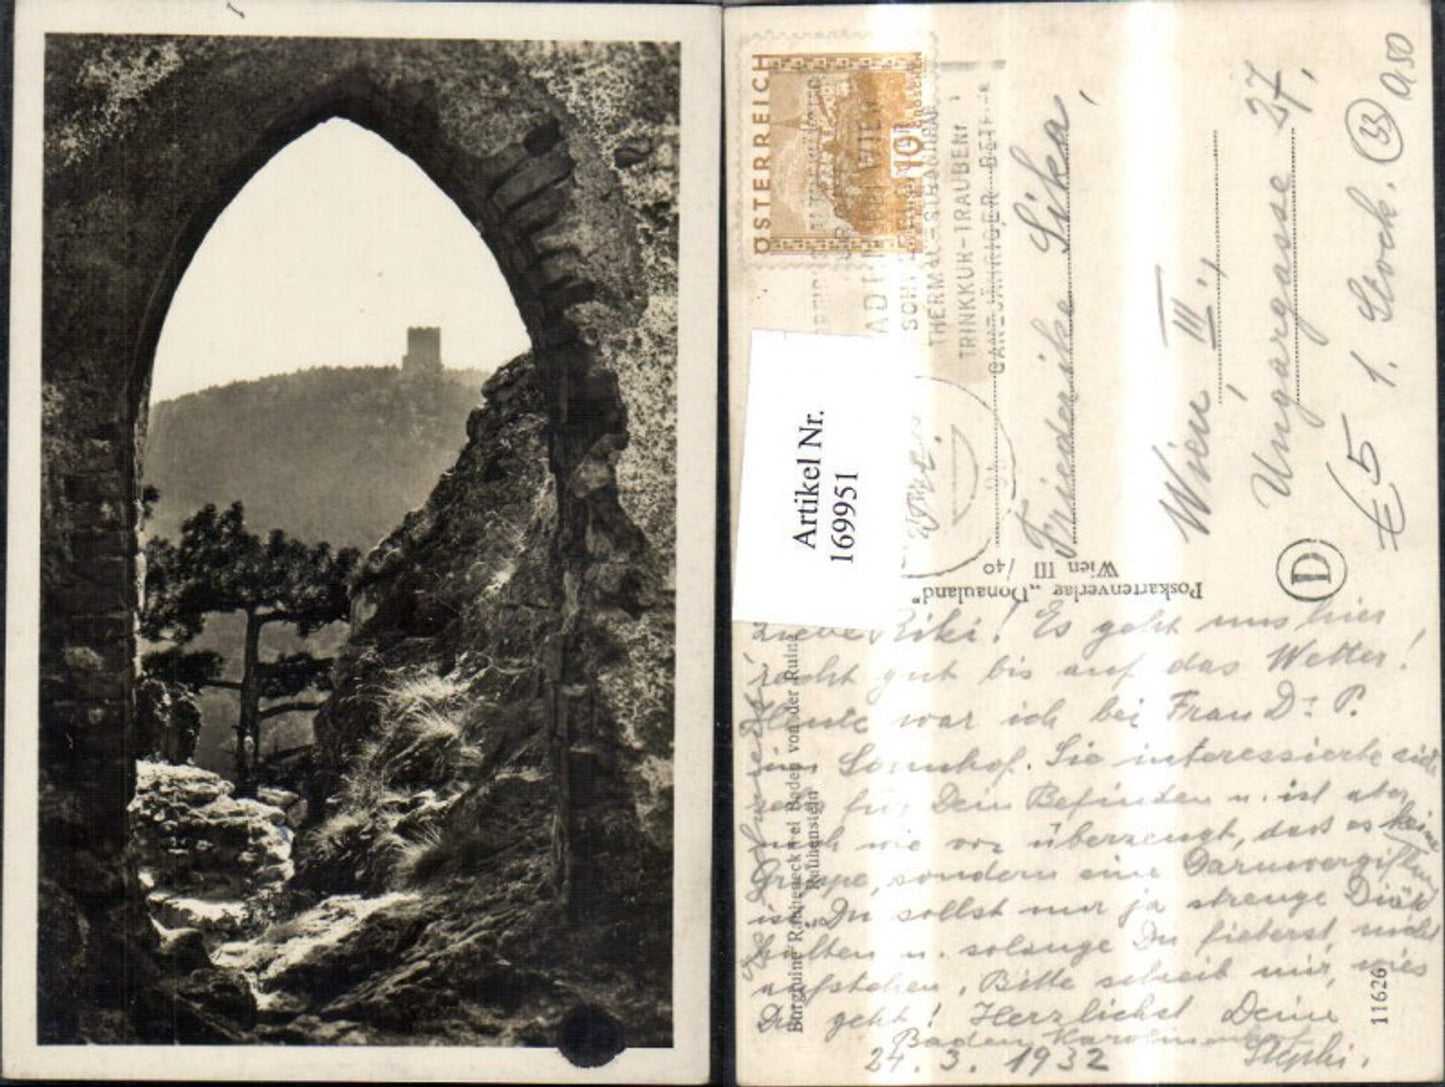 ÖSTERREICH
10
GROSCHEN
BADEN BEI WIEN
THERMAL-STRANDBAD
TRINKKUR-TRAUBENK
GANZJÄHRIGER BETR
Artikel Nr.
169951
Friederike Sika,
Wien, III.,
Ungargasse 27,
1. Stock.
33
0,50
€ 5
D
Poskartenverlag „Donauland"
Wien III /40
Burgruine Rauheneck bei Baden von der Ruine
Rauhenstein
11626
Liebe Riki! Es geht uns hier
recht gut bis auf das Wetter!
Heute war ich bei Frau Dr. P.
im Sonnhof. Sie interessierte sich
sehr für Dein Befinden u. ist aber
nach wie vor überzeugt, dass es keine
Grippe, sondern eine Darmvergiftung
ist. Du sollst nur ja strenge Diät
halten u. solange Du fieberst, nicht
aufstehen. Bitte schreib mir, wies
Dir geht! Herzlichst Deine
Stephi.
Baden
24. 3. 1932